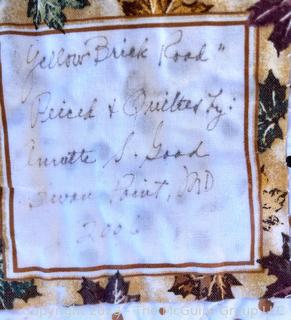 Yellow Brick Road"
Peiced & Quilted by:
Annette S. Good
Swan Point, MD
2006
Copyright 2024 The McGuire Group